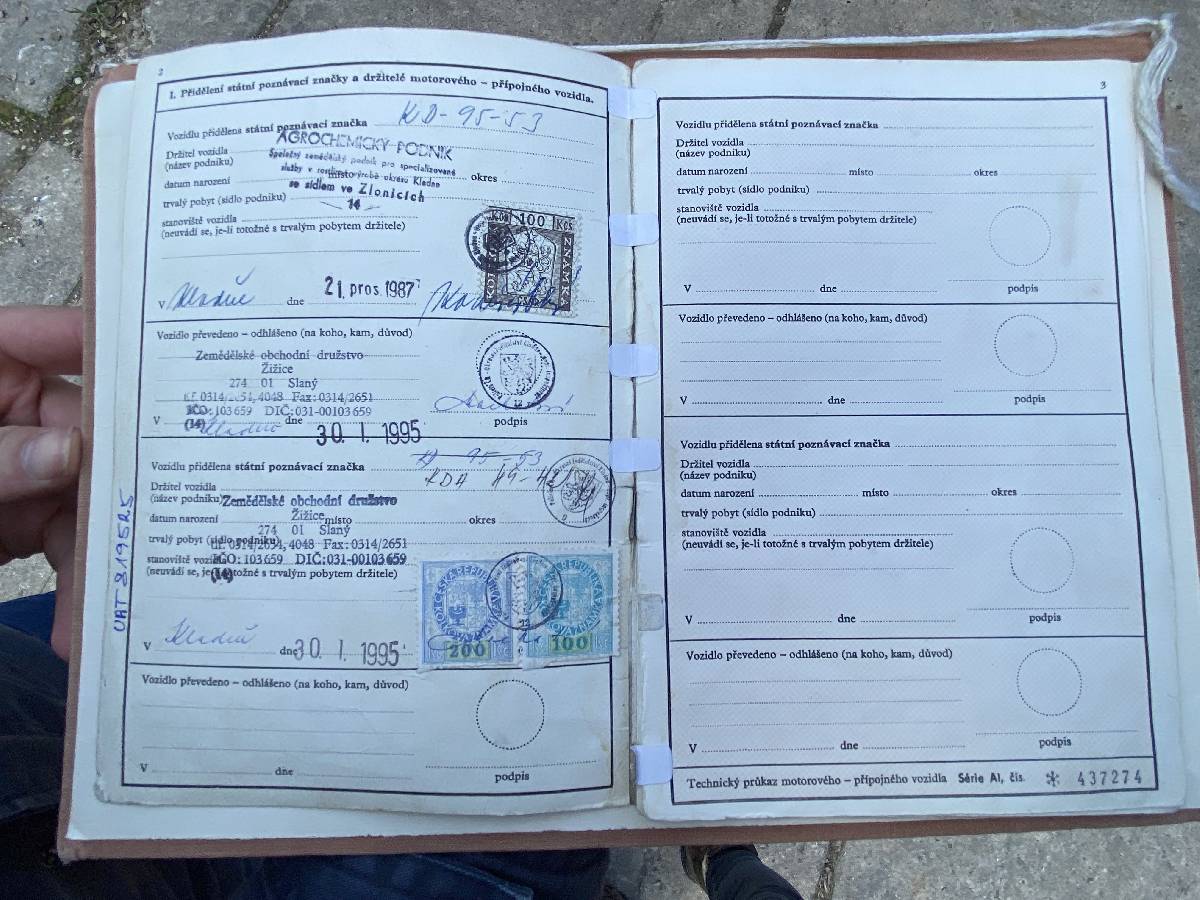 2
I. Přidělení státní poznávací značky a držitelé motorového – přípojného vozidla.
Vozidlu přidělena státní poznávací značka KD-95-53
AGROCHEMICKÝ PODNIK
Držitel vozidla
(název podniku)
Společný zemědělský podnik pro specializované
služby v rostlinné výrobě okresu Kladno
datum narození místo okres
se sídlem ve Zlonicích
trvalý pobyt (sídlo podniku)
14
stanoviště vozidla
(neuvádí se, je-li totožné s trvalým pobytem držitele)
100 Kčs
V Kladně dne 21. pros. 1987
Vozidlo převedeno – odhlášeno (na koho, kam, důvod)
Zemědělské obchodní družstvo
Žižice
274 01 Slaný
tel. 0314/2651, 4048 Fax: 0314/2651
IČO: 103659 DIČ: 031-00103659
(14)
V Kladno dne 30. 1. 1995
podpis
Vozidlu přidělena státní poznávací značka KD 95-53
KDA
Držitel vozidla
(název podniku) Zemědělské obchodní družstvo
Žižice
datum narození místo okres
274 01 Slaný
trvalý pobyt (sídlo podniku)
tel. 0314/2651, 4048 Fax: 0314/2651
stanoviště vozidla IČO: 103659 DIČ: 031-00103659
(neuvádí se, je-li totožné s trvalým pobytem držitele)
(14)
ČESKÁ REPUBLIKA
KOLKOVÁ ZNÁMKA
200
100
V Kladně dne 30. 1. 1995
Vozidlo převedeno – odhlášeno (na koho, kam, důvod)
V dne
podpis
3
Vozidlu přidělena státní poznávací značka
Držitel vozidla
(název podniku)
datum narození místo okres
trvalý pobyt (sídlo podniku)
stanoviště vozidla
(neuvádí se, je-li totožné s trvalým pobytem držitele)
V dne podpis
Vozidlo převedeno – odhlášeno (na koho, kam, důvod)
V dne podpis
Vozidlu přidělena státní poznávací značka
Držitel vozidla
(název podniku)
datum narození místo okres
trvalý pobyt (sídlo podniku)
stanoviště vozidla
(neuvádí se, je-li totožné s trvalým pobytem držitele)
V dne podpis
Vozidlo převedeno – odhlášeno (na koho, kam, důvod)
V dne podpis
Technický průkaz motorového – přípojného vozidla Série AI, čís. * 437274